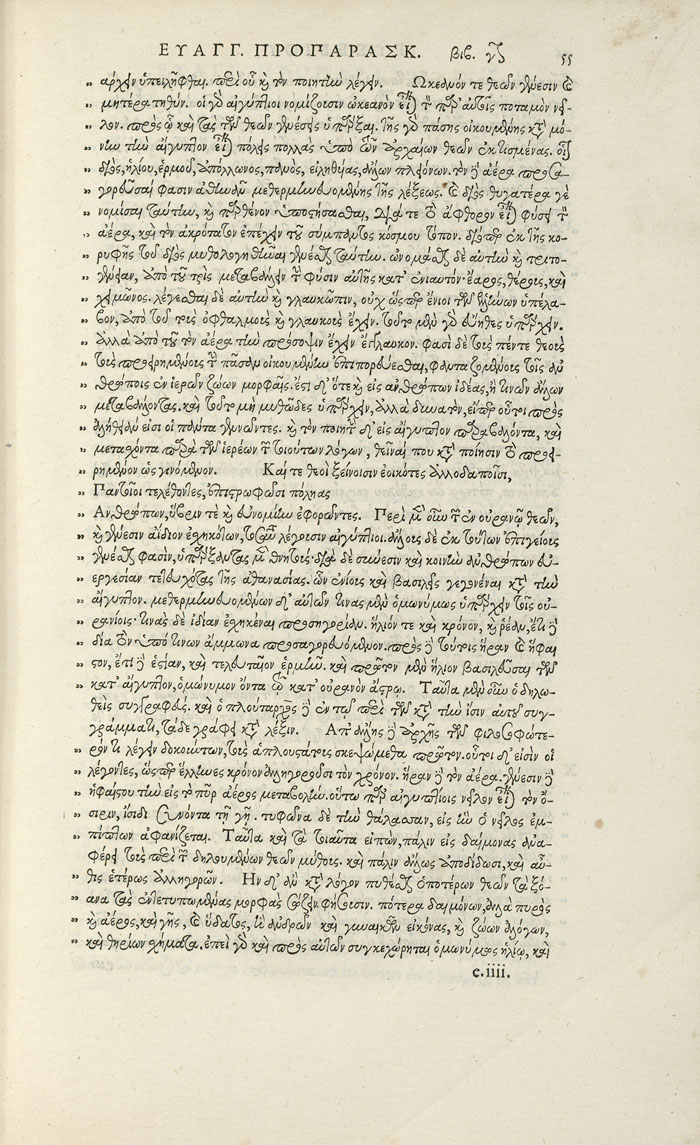 ΕΥΑΓΓ. ΠΡΟΠΑΡΑΣΚ. βιβ. γ 55
ἀρχὴν ὑπειλῆφθαι. περὶ οὗ καὶ τὸν ποιητὴν λέγειν. Ὠκεανόν τε θεῶν γένεσιν καὶ
μητέρα τηθύν. οἱ γὰρ αἰγύπτιοι νομίζουσιν ὠκεανὸν εἶναι τὸν παρ' αὐτοῖς ποταμὸν νεῖ-
λον. πρὸς ᾧ καὶ τὰς τῶν θεῶν γενέσεις ὑπάρξαι. τῆς γὰρ πάσης οἰκουμένης κατὰ μό-
νην τὴν αἴγυπτον εἶναι πόλεις πολλὰς ὑπὸ τῶν ἀρχαίων θεῶν ἐκτισμένας. οἷον
διὸς, ἡλίου, ἑρμοῦ, ἀπόλλωνος, πανὸς, εἰληθυίας, ἄλλων πλειόνων. τὸν δὲ ἀέρα προσα-
γορεῦσαί φασιν ἀθηνᾶν μεθερμηνευομένης τῆς λέξεως. καὶ διὸς θυγατέρα νε
νομίσαι ταύτην, καὶ παρθένον ὑποστήσασθαι, διά τε τὸ ἄφθορον εἶναι φύσει τὸν
ἀέρα, καὶ τὸν ἀκρότατον ἐπέχειν τοῦ σύμπαντος κόσμου τόπον. διόπερ ἐκ τῆς κο-
ρυφῆς τοῦ διὸς μυθολογηθῆναι γενέσθαι ταύτην. ὠνομάσθαι δὲ αὐτὴν καὶ τριτο-
γένειαν, ἀπὸ τοῦ τρὶς μεταβάλλειν τὴν φύσιν αὐτῆς κατ' ἐνιαυτόν· ἔαρος, θέρους, καὶ
χειμῶνος. λέγεσθαι δὲ αὐτὴν καὶ γλαυκῶπιν, οὐχ ὥσπερ ἔνιοι τῶν ἑλλήνων ὑπέλα-
βον, ἀπὸ τοῦ τοὺς ὀφθαλμοὺς καὶ γλαυκοὺς ἔχειν. τοῦτο μὲν γὰρ εὔηθες ὑπάρχειν.
ἀλλὰ ἀπὸ τοῦ τὸν ἀέρα τὴν πρόσοψιν ἔχειν ἔγλαυκον. φασὶ δὲ τοὺς πέντε θεοὺς
τοὺς προειρημένους τὴν πᾶσαν οἰκουμένην ἐπιπορεύεσθαι, φανταζομένους τοῖς ἀν
θρώποις ἐν ἱερῶν ζώων μορφαῖς. ἔστι δ' ὅτε καὶ εἰς ἀνθρώπων ἰδέας, ἤ τινων ἄλλων
μεταβάλλοντας. καὶ τοῦτο μὴ μυθῶδες ὑπάρχειν, ἀλλὰ δυνατὸν, εἴπερ οὗτοι πρὸς
ἀλήθειάν εἰσι οἱ πάντα γεννῶντες. καὶ τὸν ποιητὴν δ' εἰς αἴγυπτον παραβαλόντα, καὶ
μετασχόντα παρὰ τῶν ἱερέων τῶν τοιούτων λόγων, θεῖναί που κατὰ ποίησιν τὸ προει-
ρημένον ὡς γινόμενον. Καί τε θεοὶ ξείνοισιν ἐοικότες ἀλλοδαποῖσι,
Παντοῖοι τελέθοντες, ἐπιστρωφῶσι πόληας
Ἀνθρώπων, ὕβριν τε καὶ εὐνομίην ἐφορῶντες. Περὶ μὲν οὖν τῶν ἐν οὐρανῷ θεῶν,
καὶ γένεσιν ἀΐδιον ἐσχηκότων, τοσαῦτα λέγουσιν αἰγύπτιοι. ἄλλους δὲ ἐκ τούτων ἐπιγείους
γενέσθαι φασὶν, ὑπάρξαντας μὲν θνητούς· διὰ δὲ σύνεσιν καὶ κοινὴν ἀνθρώπων εὐ-
εργεσίαν τετευχότας τῆς ἀθανασίας. ὧν ἐνίους καὶ βασιλεῖς γεγονέναι κατὰ τὴν
αἴγυπτον. μεθερμηνευομένων δ' αὐτῶν τινὰς μὲν ὁμωνύμως ὑπάρχειν τοῖς οὐ-
ρανίοις· τινὰς δὲ ἰδίαν ἐσχηκέναι προσηγορίαν. ἥλιόν τε καὶ κρόνον, καὶ ῥέαν, ἔτι δὲ
δία τὸν ὑπό τινων ἄμμωνα προσαγορευόμενον. πρὸς δὲ τούτοις ἥραν καὶ ἥφαι
στον, ἔτι δὲ ἑστίαν, καὶ τελευταῖον ἑρμῆν. καὶ πρῶτον μὲν ἥλιον βασιλεῦσαι τῶν
κατ' αἴγυπτον, ὁμώνυμον ὄντα τῷ κατ' οὐρανὸν ἄστρῳ. Ταῦτα μὲν οὖν ὁ δηλω-
θεὶς συγγραφεύς. καὶ ὁ πλούταρχος δὲ ἐν τῷ περὶ τῶν κατὰ τὴν ἶσιν αὐτοῦ συγ-
γράμματι, τάδε γράφει κατὰ λέξιν. Ἀπ' ἄλλης δὲ ἀρχῆς τῶν φιλοσοφώτε-
ρόν τι λέγειν δοκούντων, τοὺς ἁπλουστάτους σκεψώμεθα πρῶτον. οὗτοι δ' εἰσὶν οἱ
λέγοντες, ὥσπερ ἕλληνες κρόνον ἀλληγοροῦσι τὸν χρόνον. ἥραν δὲ τὸν ἀέρα. γένεσιν δὲ
ἡφαίστου τὴν εἰς τὸ πῦρ ἀέρος μεταβολήν. οὕτω παρ' αἰγυπτίοις νεῖλον εἶναι τὸν ὄ-
σιριν, ἴσιδι συνόντα τῇ γῇ. τυφῶνα δὲ τὴν θάλασσαν, εἰς ἣν ὁ νεῖλος ἐμ-
πίπτων ἀφανίζεται. Ταῦτα καὶ τὰ τοιαῦτα εἰπὼν, πάλιν εἰς δαίμονας ἀνα-
φέρει τοὺς περὶ τῶν δηλουμένων θεῶν μύθους. καὶ πάλιν ἄλλως ἀποδίδωσι, καὶ αὖ-
θις ἑτέρως ἀλληγορῶν. Ἦν δ' ἂν κατὰ λόγον πυθέσθαι ὁποτέρων θεῶν τὰ ξό-
ανα τὰς ἐντετυπωμένας μορφὰς σώζειν φήσουσιν. πότερα δαιμόνων, ἀλλὰ πυρὸς
καὶ ἀέρος, καὶ γῆς, καὶ ὕδατος, ἢ ἀνδρῶν καὶ γυναικῶν εἰκόνας, καὶ ζώων ἀλόγων,
καὶ θηρίων σχήματα. ἐπεὶ γὰρ καὶ πρὸς αὐτῶν συγκεχώρηται ὁμωνύμους ἡλίῳ, καὶ
e.iiii.